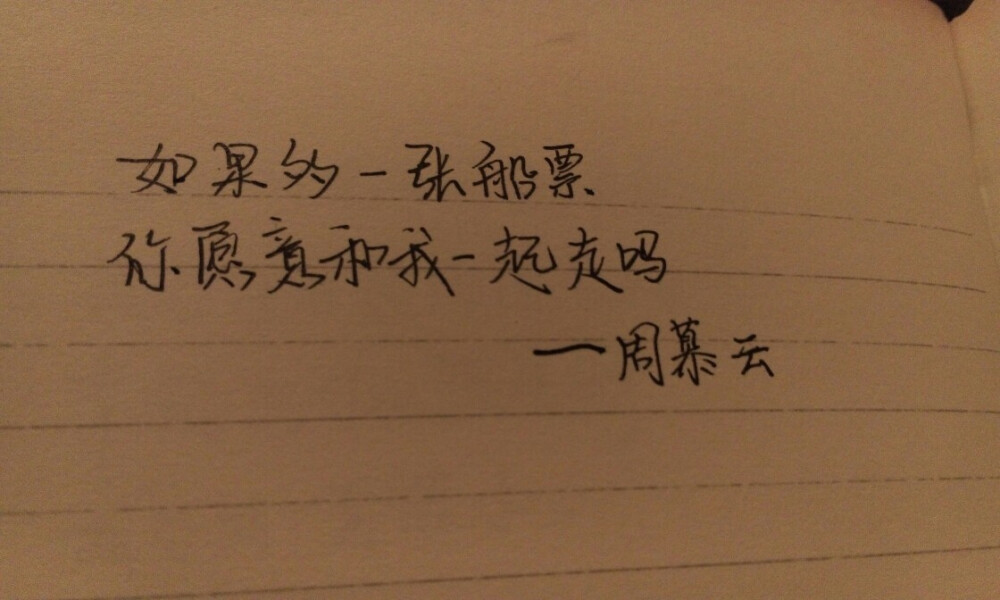 如果多一张船票
你愿意和我一起走吗
—周慕云